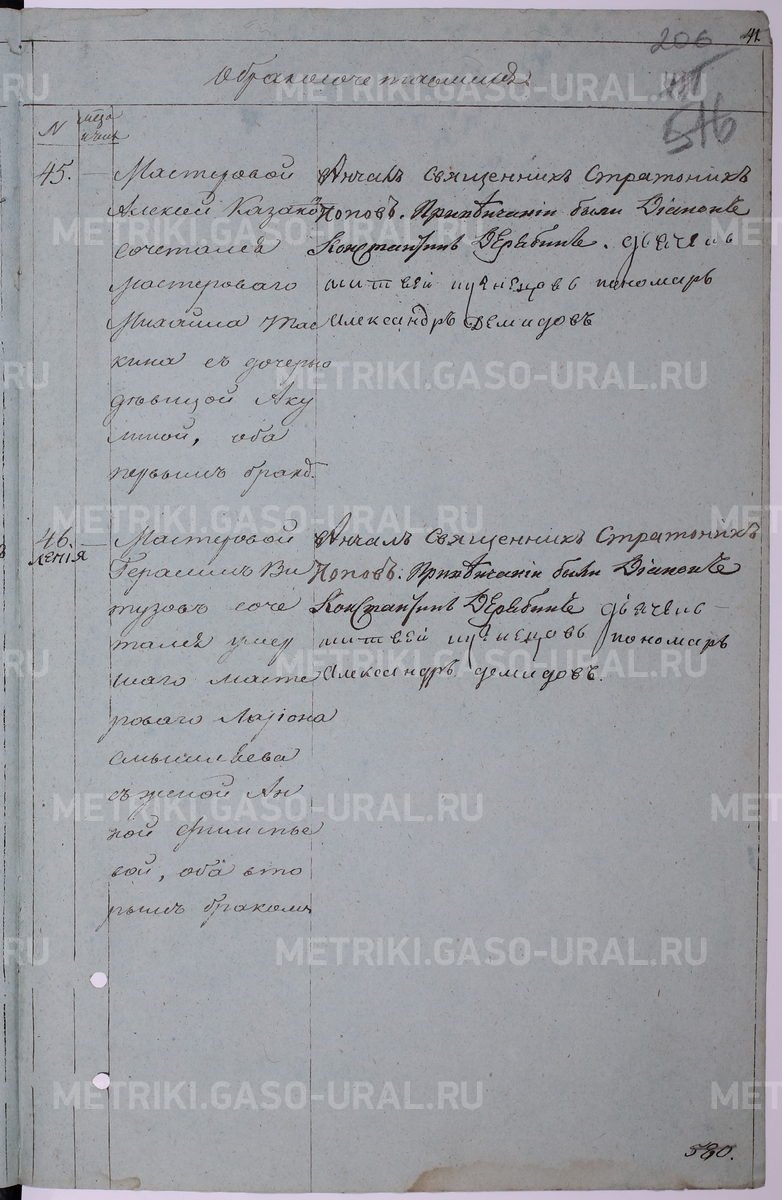 206 41.
Обраколочетахшихся
516
N
45. — Мастеровой
Алексей Казако
сочетался
мастероваго
Михайла Тас
кина съ дочерью
дѣвицой Аку
линой, оба
первымъ бракъ.
Вѣнчалъ священникъ Стратоникъ
Поповъ. При вѣнчаніи были Діаконъ
Константинъ Дерябинъ. дьячекъ
матвей пуненцовъ пономарь
Александръ Демидовъ
46. — Мастеровой
ленія
Герасимъ Ви
тузовъ соче
тался умер
шаго масте
роваго Ларіона
Смышляева
съ женой Ан
ной Филипье
вой, оба вто
рымъ бракомъ
Вѣнчалъ священникъ Стратоникъ
Поповъ. При вѣнчаніи были Діаконъ
Константинъ Дерябинъ дьячекъ
матвей пуненцовъ пономарь
Александръ демидовъ.
580.
METRIKI.GASO-URAL.RU